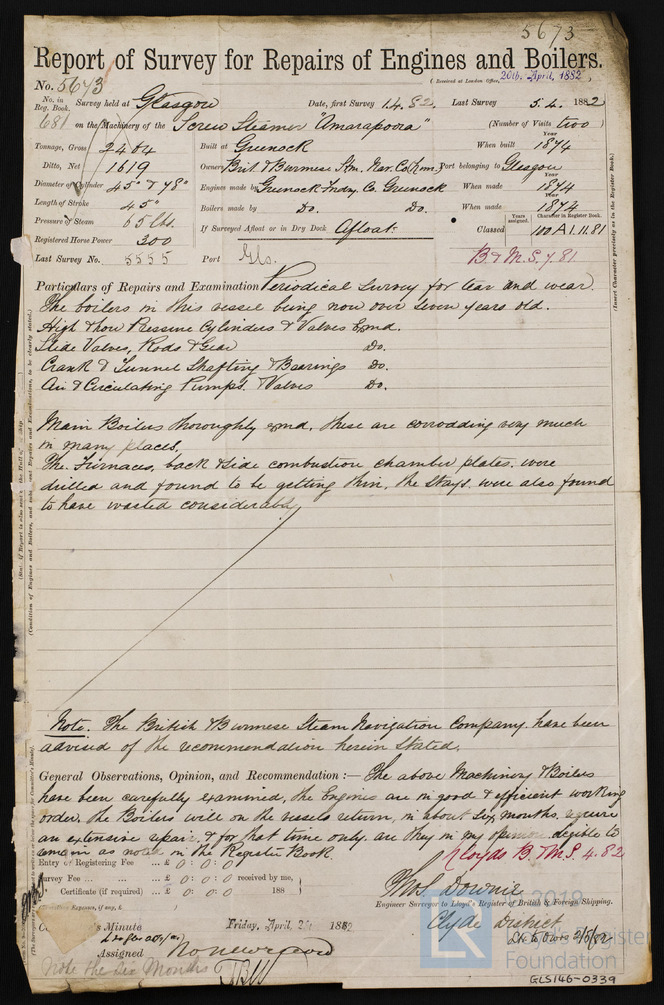 5673
Report of Survey for Repairs of Engines and Boilers.
(Received at London Office, 20th. April, 1882,
No. 5673
No. in Reg. Book. Survey held at Glasgow Date, first Survey 1.4.82. Last Survey 5.4. 1882
681 on the Machinery of the Screw Steamer "Amarapoora" (Number of Visits two)
Tonnage, Gross 2404 Built at Greenock When built Year 1874
Ditto, Net 1619 Owners Brit & Burmese Stm. Nav. Co (Lim) Port belonging to Glasgow
Diameter of Cylinder 45" & 78" Engines made by Greenock Fndry. Co. Greenock When made Year 1874
Length of Stroke 45" Boilers made by Do. Do. When made Year 1874
Pressure of Steam 65 lbs. If Surveyed Afloat or in Dry Dock Afloat Classed Years assigned. Character in Register Book. 100 A 1. 11. 81
Registered Horse Power 300
Last Survey No. 5555 Port Gls. B & M. S. 7. 81
Particulars of Repairs and Examination Periodical Survey for tear and wear.
The boilers in this vessel being now over seven years old.
High & low Pressure Cylinders & Valves Exmd.
Slide Valves, Rods & Gear Do.
Crank & Tunnel Shafting & Bearings Do.
Air & Circulating Pumps & Valves Do.
Main Boilers thoroughly exmd, these are corrodding very much
in many places,
The Furnaces, back & side combustion chamber plates were
drilled and found to be getting thin, the Stays were also found
to have wasted considerably
Note. The British & Burmese Steam Navigation Company have been
advised of the recommendation herein stated.
General Observations, Opinion, and Recommendation :— The above Machinery & Boilers
have been carefully examined, the Engines are in good & efficient working
order, the Boilers will on the vessels return, in about Six months, require
an extensive repair, & for that time only are they in my opinion elegible to
remain as noted in the Register Book.
Lloyds B. & M. S. 4. 82
Entry or Registering Fee ... £ 0 : 0 : 0
Survey Fee ... £ 0 : 0 : 0 received by me,
Certificate (if required) ... £ 0 : 0 : 0 188
(Travelling Expenses, if any, £ )
Thos Downie
Engineer Surveyor to Lloyd's Register of British & Foreign Shipping.
Clyde District
's Minute Friday, April, 21 1882
Assigned
Note the six Months
(Insert Character precisely as in the Register Book.)
LR
2018
Lloyd's Register
Foundation
GLS146-0339